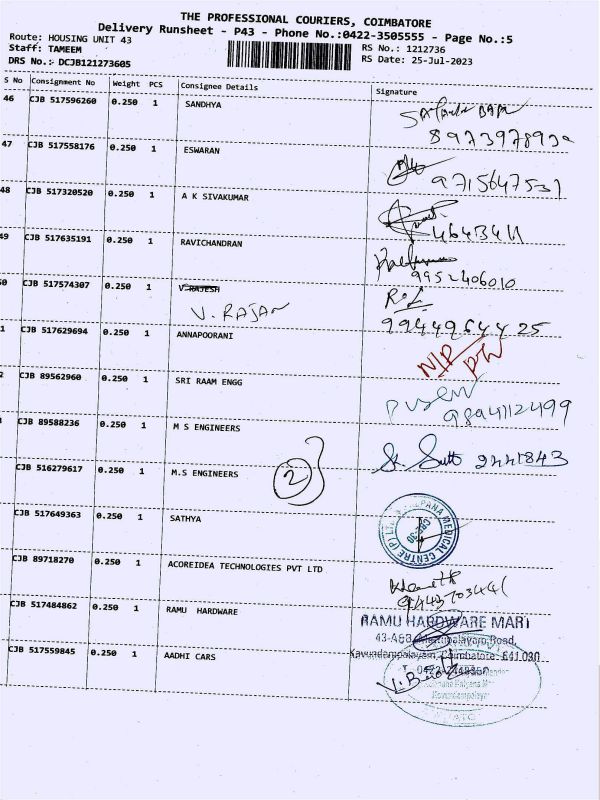 THE PROFESSIONAL COURIERS, COIMBATORE
Delivery Runsheet - P43 - Phone No.:0422-3505555 - Page No.:5
Route: HOUSING UNIT 43
Staff: TAMEEM
RS No.: 1212736
DRS No.:- DCJB121273605
RS Date: 25-Jul-2023
S No Consignment No Weight PCS Consignee Details Signature
46 CJB 517596260 0.250 1 SANDHYA
8973978939
47 CJB 517558176 0.250 1 ESWARAN
9715647531
48 CJB 517320520 0.250 1 A K SIVAKUMAR
4643411
49 CJB 517635191 0.250 1 RAVICHANDRAN
9952406010
0 CJB 517574307 0.250 1 V.RAJESH
V. RAJAN
9944964425
1 CJB 517629694 0.250 1 ANNAPOORANI
N/P
2 CJB 89562960 0.250 1 SRI RAAM ENGG
9894112499
CJB 89588236 0.250 1 M S ENGINEERS
2441843
CJB 516279617 0.250 1 M.S ENGINEERS
2
CJB 517649363 0.250 1 SATHYA
MEDICAL CENTRE (P) LTD
CBE-30
CJB 89718270 0.250 1 ACOREIDEA TECHNOLOGIES PVT LTD
CJB 517484862 0.250 1 RAMU HARDWARE
RAMU HARDWARE MART
Road,
Kavundampalayam, Coimbatore- 641 030
CJB 517559845 0.250 1 AADHI CARS
Kavundampalayam